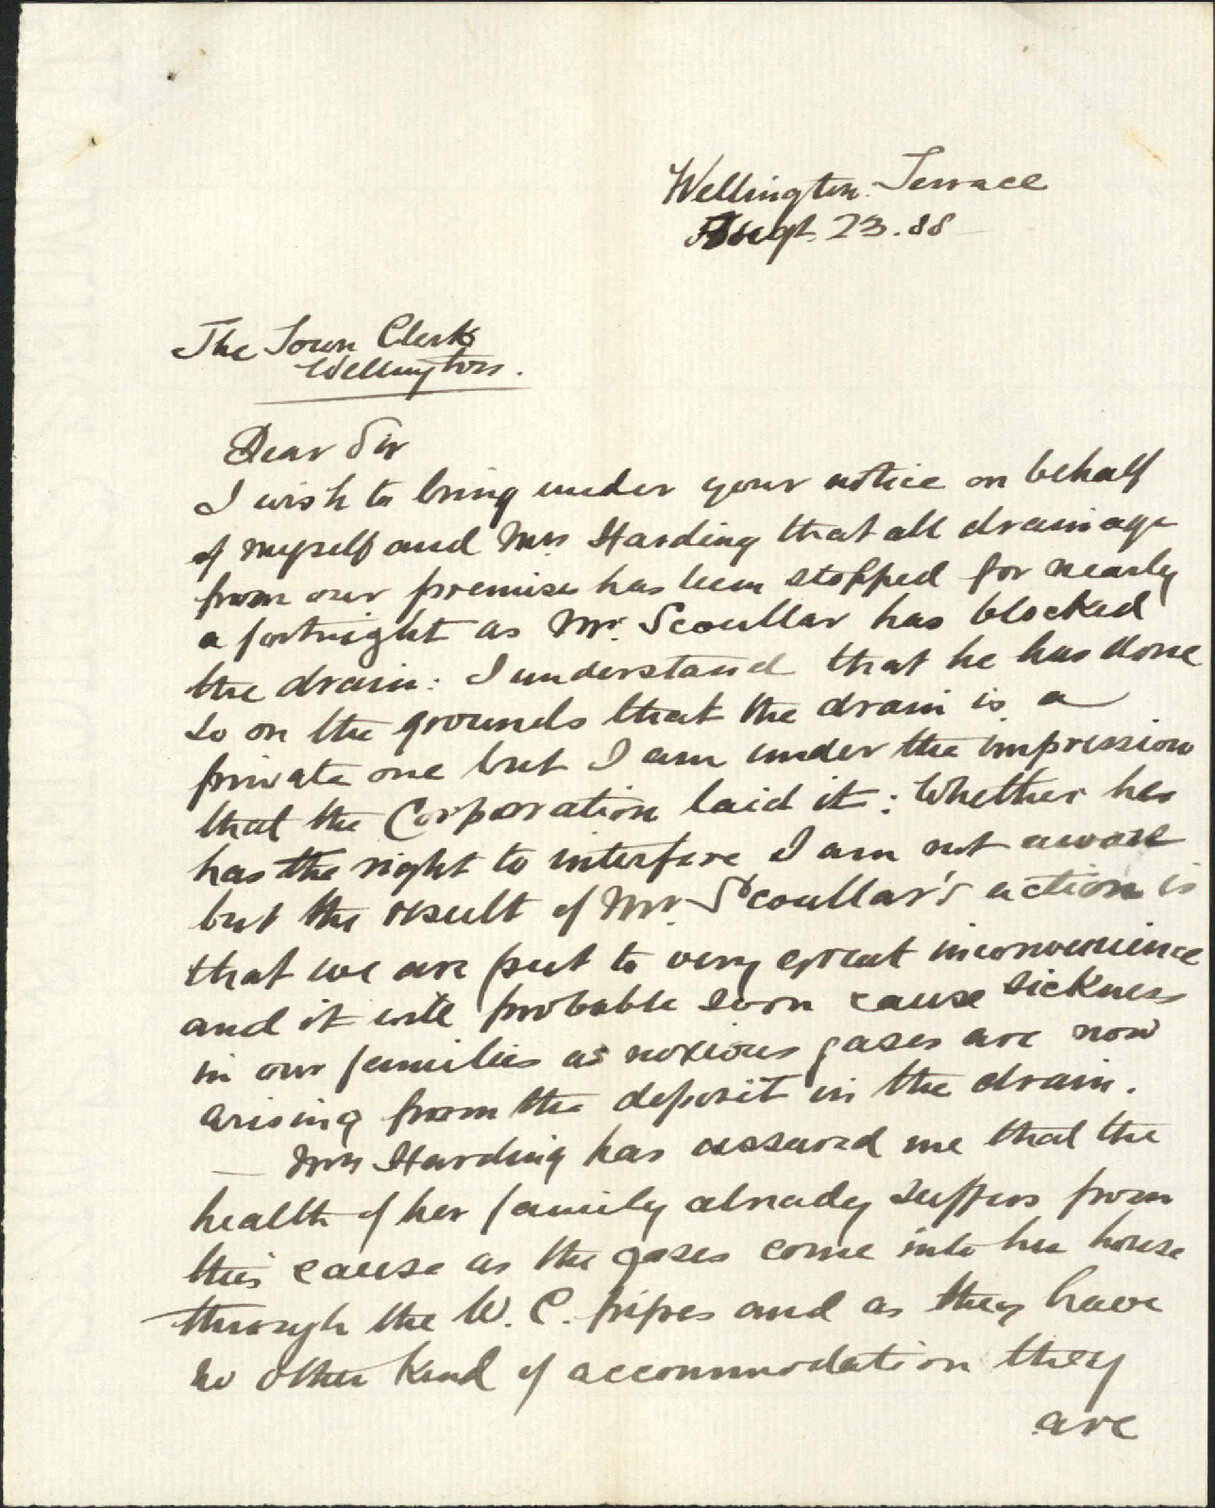 Wellington Terrace
Augt. 23. 88
The Town Clerk
Wellington.
Dear Sir
I wish to bring under your notice on behalf
of myself and Mrs Harding that all drainage
from our premises has been stopped for nearly
a fortnight as Mr. Scoullar has blocked
the drain: I understand that he has done
so on the grounds that the drain is a
private one but I am under the impression
that the Corporation laid it: Whether he
has the right to interfere I am not aware
but the result of Mr. Scoullar's action is
that we are put to very great inconvenience
and it will probable soon cause sickness
in our families as noxious gases are now
arising from the deposit in the drain.
— Mrs Harding has assured me that the
health of her family already suffers from
this cause as the gases come into her house
through the W. C. pipes and as they have
no other kind of accommodation they
are